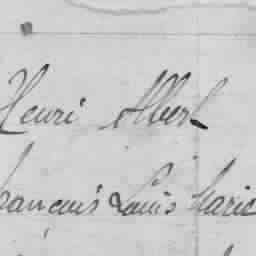 Henri Albert
François Louis Marie